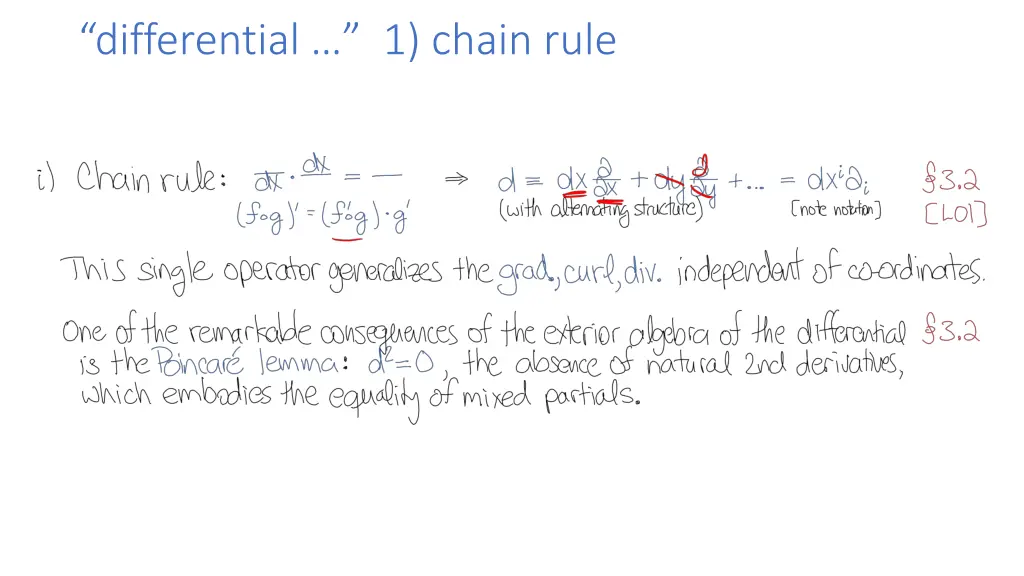 “differential …” 1) chain rule
i) Chain rule: dx · dx = — ⇒ d ≡ dx ∂/∂x + dy ∂/∂y + ... = dxⁱ∂ᵢ §3.2
(f∘g)' = (f'∘g)·g' (with alternating structure) [note notation] [LO1]
This single operator generalizes the grad, curl, div. independent of co-ordinates.
One of the remarkable consequences of the exterior algebra of the differential §3.2
is the Poincaré lemma: d²=0, the absence of natural 2nd derivatives,
which embodies the equality of mixed partials.